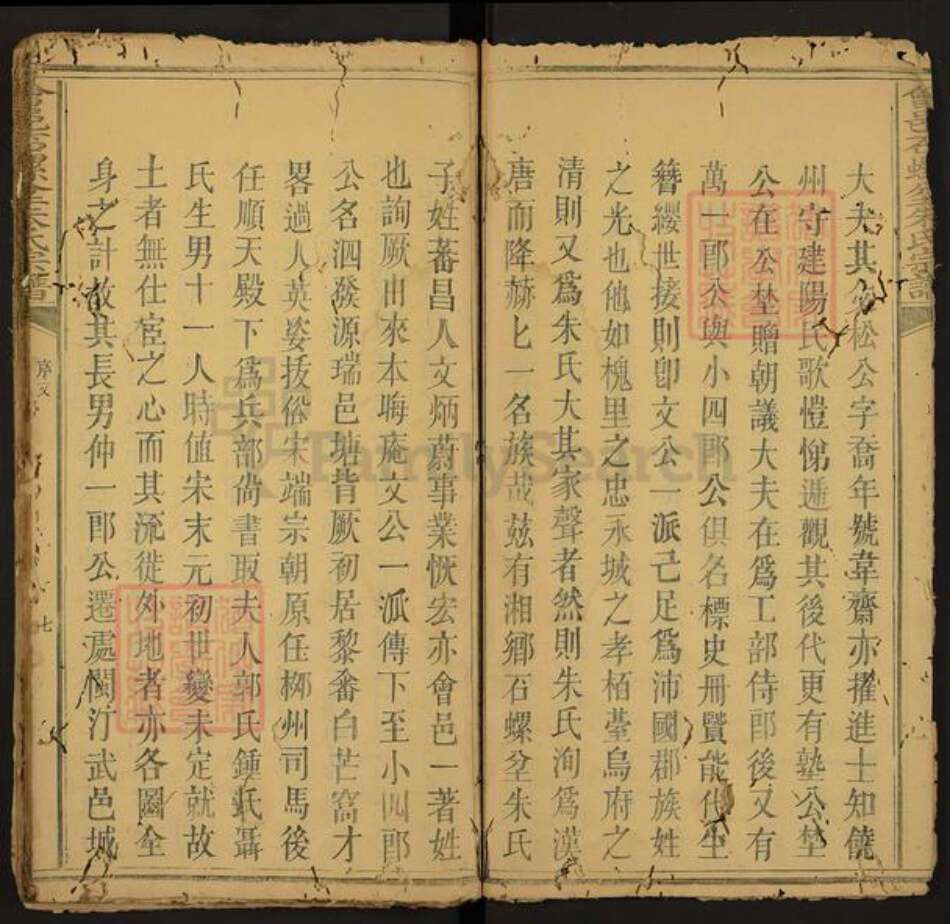 大夫其父松公字喬年號韋齋亦擢進士知饒
州守建陽民歌愷悌遞觀其後代更有塾公埜
公在公埜贈朝議大夫在爲工部侍郎後又有
萬一郎公與小四郎公俱名標史冊賢能代生
簪纓世接則卽文公一派已足爲沛國郡族姓
之光也他如槐里之忠永城之孝栢臺烏府之
清則又爲朱氏大其家聲者然則朱氏洵爲漢
唐而降赫匕一名族哉兹有湘鄉石螺坌朱氏
子姓蕃昌人文炳蔚事業恢宏亦會邑一著姓
也詢厥由來本晦庵文公一派傳下至小四郎
公名泗發源瑞邑塘背厥初居黎畬白芒窩才
畧過人英姿拔俗宋端宗朝原任栁州司馬後
任順天殿下爲兵部尚書取夫人郭氏鍾氏聶
氏生男十一人時值宋末元初世變未定就故
土者無仕宦之心而其流徙外地者亦各圖全
身之計故其長男仲一郎公遷處閩汀武邑城
會邑石螺坌朱氏宗譜
會邑石螺坌朱氏宗譜
序文
七
FamilySearch